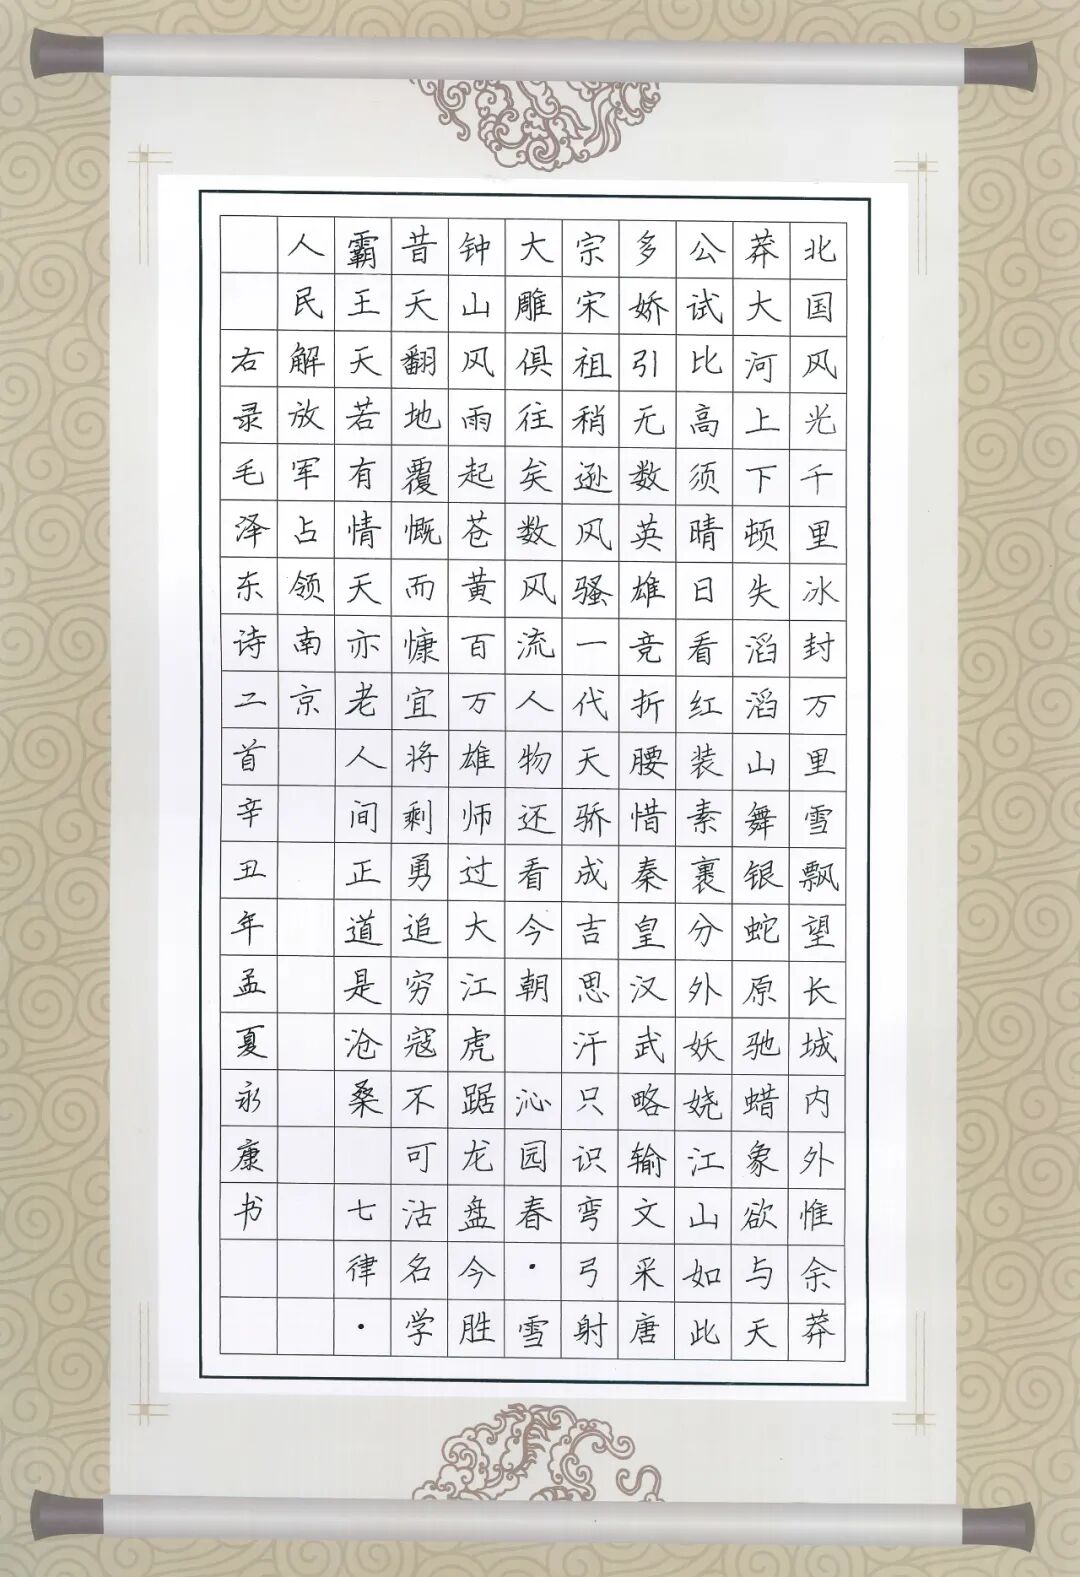 北国风光千里冰封万里雪飘望长城内外惟余莽
莽大河上下顿失滔滔山舞银蛇原驰蜡象欲与天
公试比高须晴日看红装素裹分外妖娆江山如此
多娇引无数英雄竞折腰惜秦皇汉武略输文采唐
宗宋祖稍逊风骚一代天骄成吉思汗只识弯弓射
大雕俱往矣数风流人物还看今朝 沁园春·雪
钟山风雨起苍黄百万雄师过大江虎踞龙盘今胜
昔天翻地覆慨而慷宜将剩勇追穷寇不可沽名学
霸王天若有情天亦老人间正道是沧桑 七律·
人民解放军占领南京
右录毛泽东诗二首辛丑年孟夏永康书